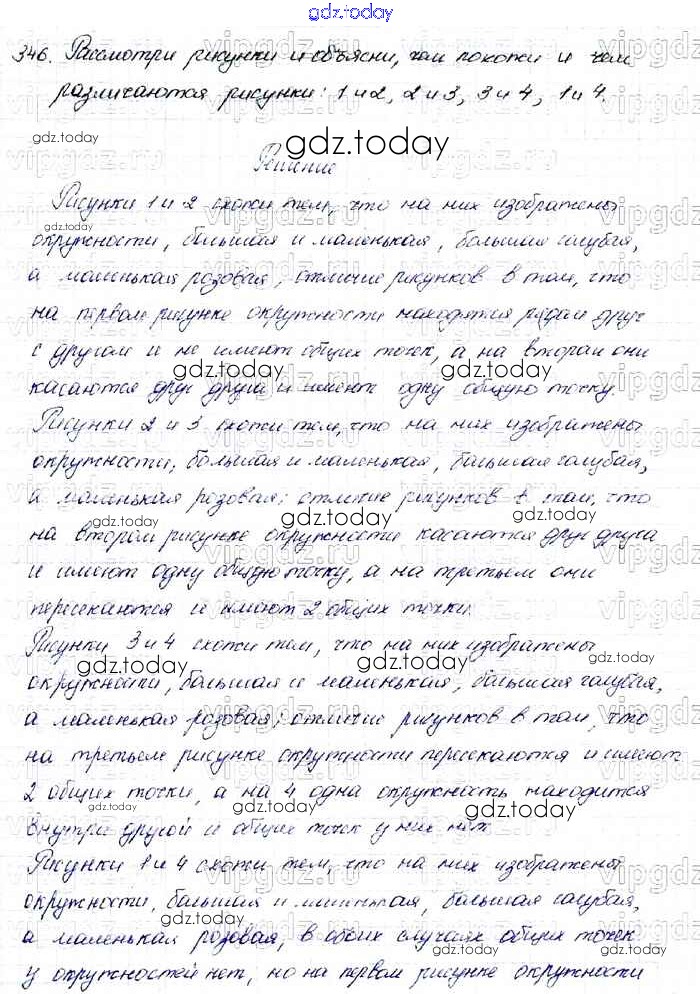 gdz.today
346. Рассмотри рисунки и объясни, чем похожи и чем
различаются рисунки: 1 и 2, 2 и 3, 3 и 4, 1 и 4.
gdz.today
gdz.today
Решение
Рисунки 1 и 2 схожи тем, что на них изображены
gdz.today
окружности, большая и маленькая, большая голубая,
а маленькая розовая, отличие рисунков в том, что
на первом рисунке окружности находятся рядом друг
с другом и не имеют общих точек, а на втором они
gdz.today
gdz.today
касаются друг друга и имеют одну общую точку.
Рисунки 2 и 3 схожи тем, что на них изображены
окружности, большая и маленькая, большая голубая,
а маленькая розовая; отличие рисунков в том, что
gdz.today
gdz.today
gdz.today
на втором рисунке окружности касаются друг друга
и имеют одну общую точку, а на третьем они
пересекаются и имеют 2 общих точки.
Рисунки 3 и 4 схожи тем, что на них изображены
gdz.today
gdz.today
gdz.today
окружности, большая и маленькая, большая голубая,
а маленькая розовая; отличие рисунков в том, что
на третьем рисунке окружности пересекаются и имеют
2 общих точки, а на 4 одна окружность находится
gdz.today
gdz.today
внутри другой и общих точек у них нет.
Рисунки 1 и 4 схожи тем, что на них изображены
окружности, большая и маленькая, большая голубая,
gdz.today
gdz.today
а маленькая розовая, в обоих случаях общих точек
у окружностей нет, но на первом рисунке окружности
vipgdz.ru